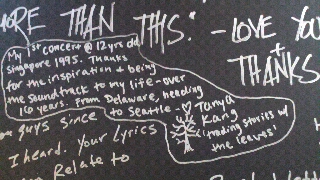 MORE THAN THIS." - LOVE YOU
+
THANKS
My 1st concert @ 12yrs old
Singapore 1995. Thanks
for the inspiration + being
the soundtrack to my life - over
16 years. From Delaware, heading
to Seattle - ♡ Tanya
Kang
("trading stories w/
the leaves"
guys since
I heard. Your Lyrics
Relate to